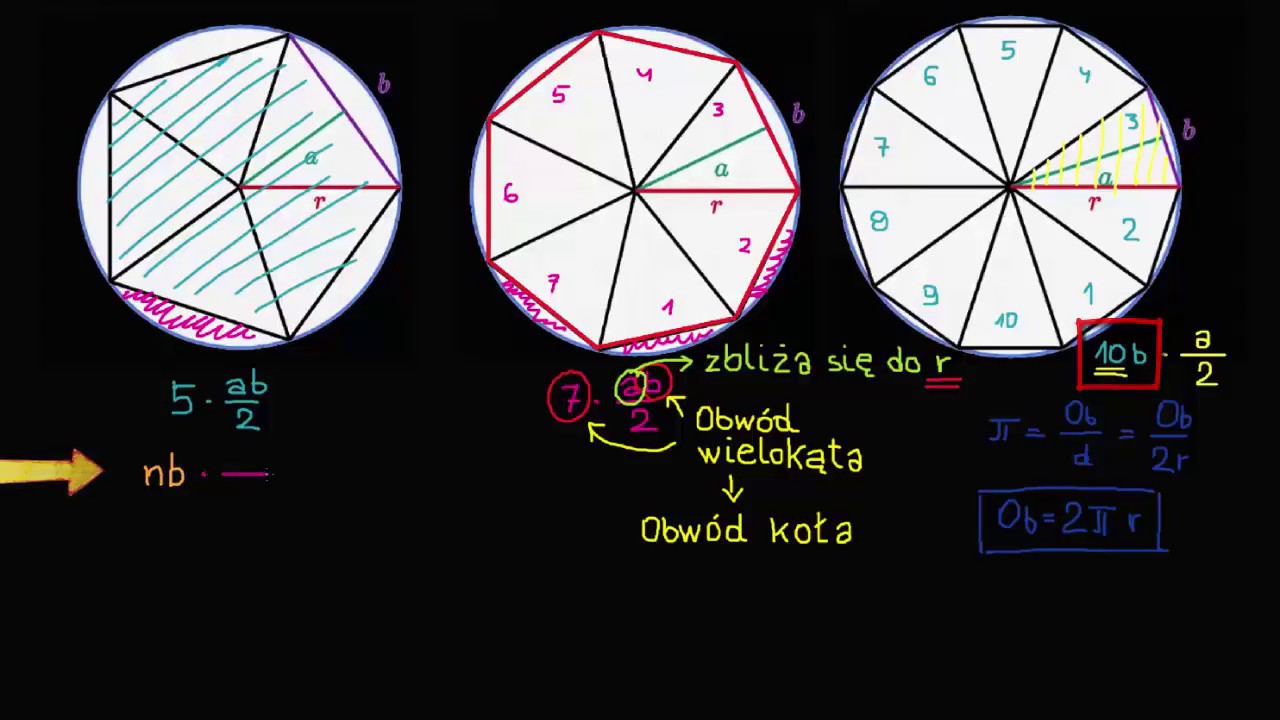 b
a
r
5
4
3
b
a
6
r
2
7
1
5
6
4
3
b
7
a
r
8
2
9
1
10
5 · ab/2
7 · ab/2
zbliża się do r
10b · a/2
Obwód
wielokąta
↓
Obwód koła
π = Ob/d = Ob/2r
Ob = 2π r
nb · —